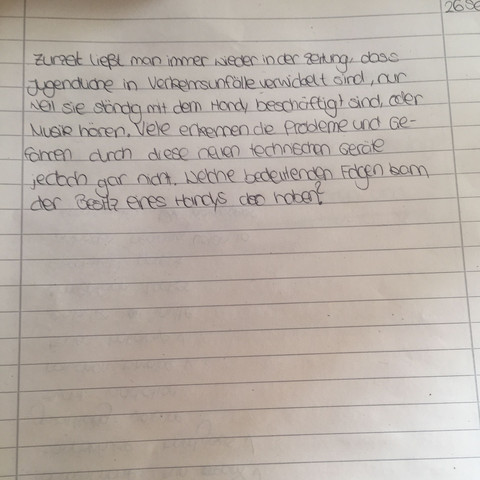 26.Se
Zurzeit ließt man immer wieder in der Zeitung, dass
Jugendliche in Verkehrsunfälle verwickelt sind, nur
weil sie ständig mit dem Handy beschäftigt sind, oder
Musik hören. Viele erkennen die Probleme und Ge-
fahren durch diese neuen technischen Geräte
jedoch gar nicht. Welche bedeutenden Folgen kann
der Besitz eines Handys also haben?